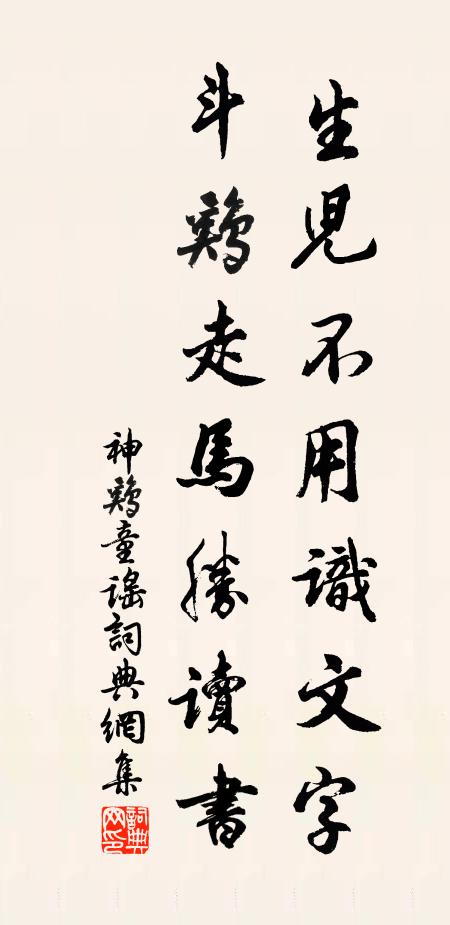 生兒不用識文字
斗鷄走馬勝讀書
神鷄童謠詞典網集
詞典網印